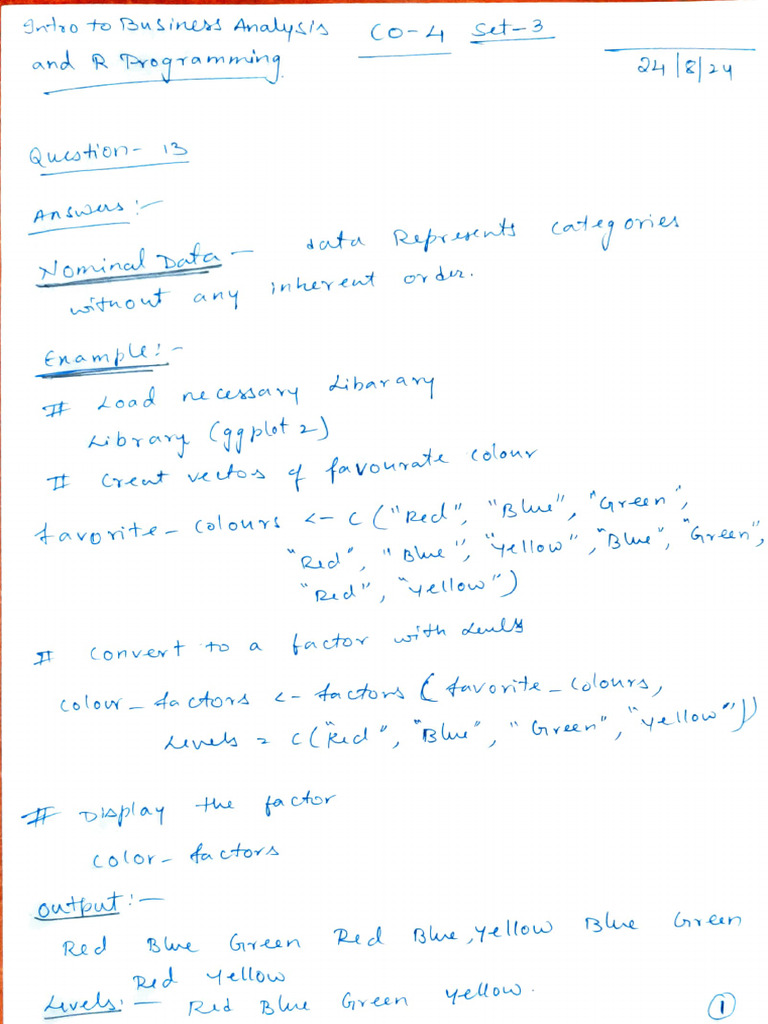 Intro to Business Analysis CO-4 Set-3
and R Programming 24/8/24
Question- 13
Answers:-
Nominal Data - data Represents categories
without any inherent order.
Example:-
# Load necessary Libarary
Library (ggplot 2)
# Creat vectos of favourate colour
favorite_colours <- c ("Red", "Blue", "Green",
"Red", "Blue", "Yellow", "Blue", "Green",
"Red", "Yellow")
# Convert to a factor with Levels
Colour_factors <- factors (favorite_colours,
Levels = c("Red", "Blue", "Green", "Yellow"))
# Display the factor
Color_factors
Output:-
Red Blue Green Red Blue, Yellow Blue Green
Red Yellow
Levels:- Red Blue Green Yellow.
1